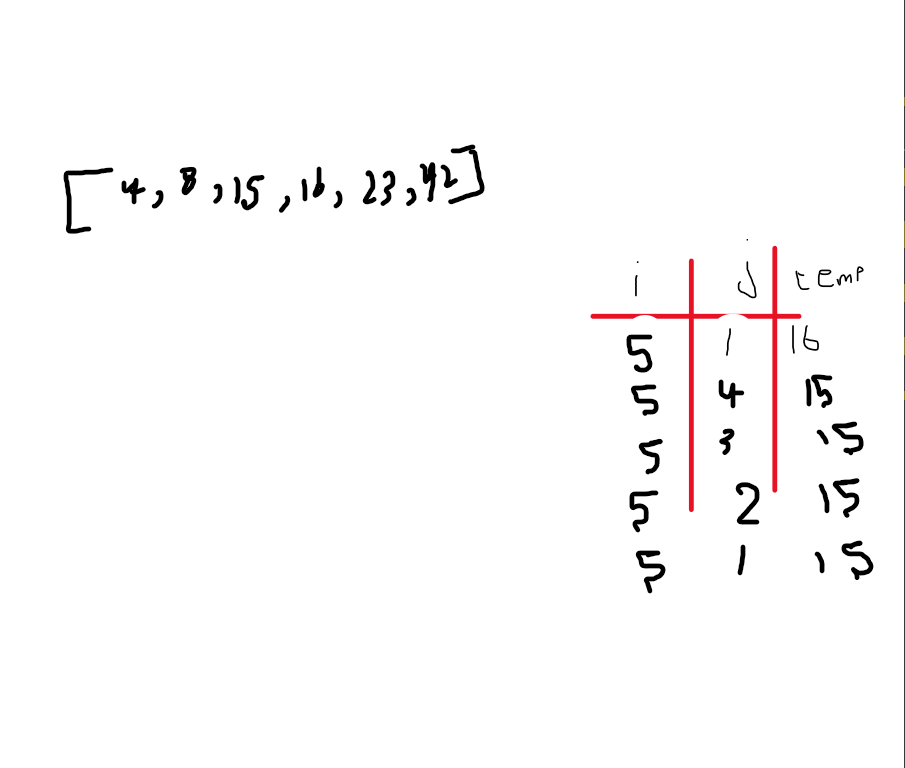 [4, 8, 15, 16, 23, 42]
i j temp
5 1 16
5 4 15
5 3 15
5 2 15
5 1 15